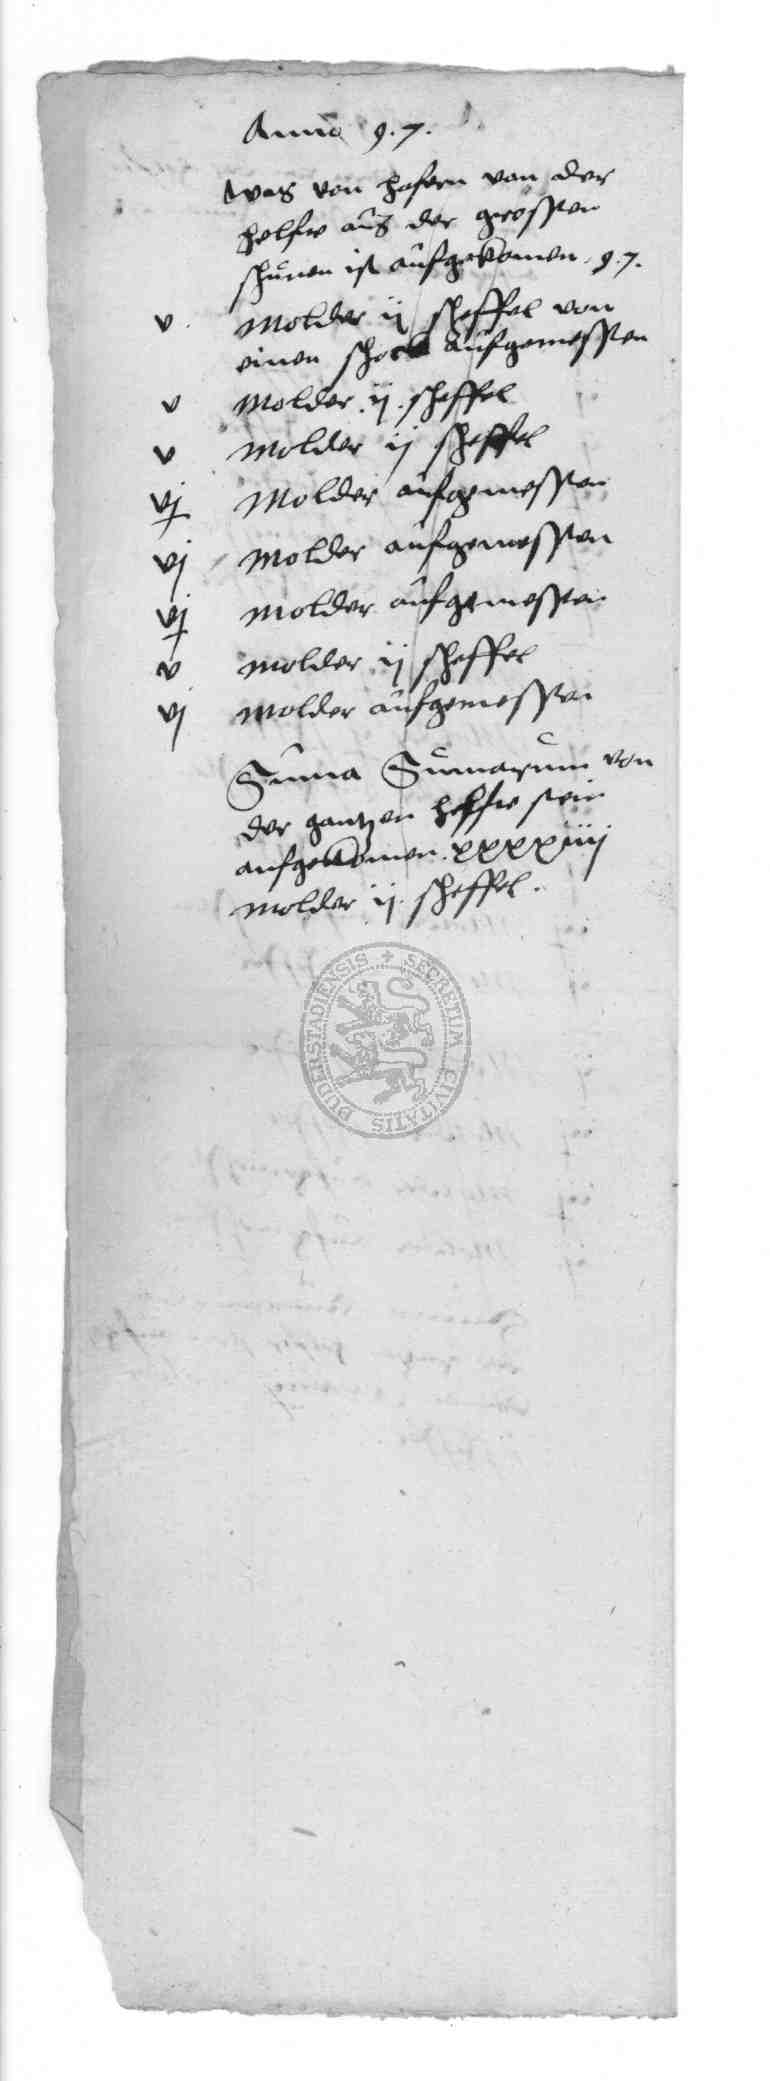 Anno 9.7.
Was von hafern von der
helfte auß der grossen
shunen ist aufgekomen 97.
v. Molder ij sheffel von
einen shock aufgemessen
v Molder .ij. sheffel
v Molder ij sheffel
vj Molder aufgemessen
vj Molder aufgemessen
vj Molder aufgemessen
v Molder ij sheffel
vj Molder aufgemessen
Suma Sumarum von
der gantzen helfte sein
aufgekomen xxxxiiij
Molder ij. sheffel.
SECRETUM CIVITATIS DUDERSTADIENSIS